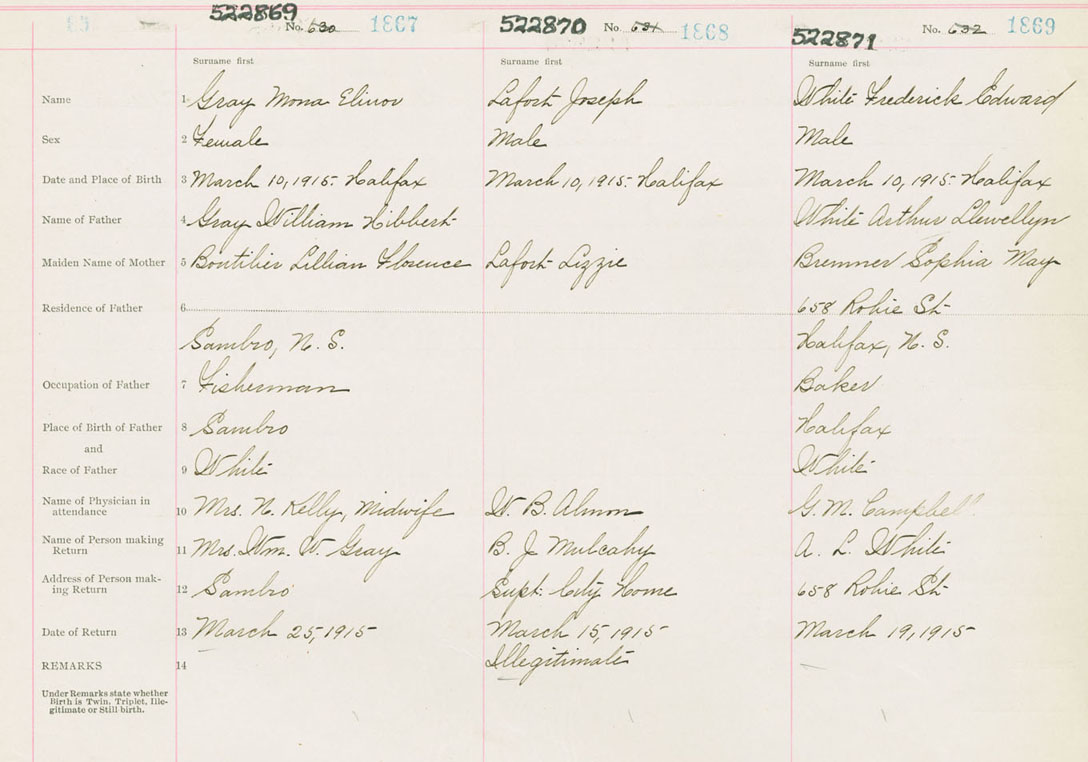 522869 No. 630 1867 522870 No 631 1868 522871 No. 632 1869
Surname first Surname first Surname first
Name 1 Gray Mona Elinor Lafort Joseph White Frederick Edward
Sex 2 Female Male Male
Date and Place of Birth 3 March 10, 1915. Halifax March 10, 1915. Halifax March 10, 1915. Halifax
Name of Father 4 Gray William Hibbert White Arthur Llewellyn
Maiden Name of Mother 5 Boutilier Lillian Florence Lafort Lizzie Bremner Sophia May
Residence of Father 6 658 Robie St.
Sambro, N. S. Halifax, N. S.
Occupation of Father 7 Fisherman Baker
Place of Birth of Father 8 Sambro Halifax
and
Race of Father 9 White White
Name of Physician in
attendance 10 Mrs. N. Kelly, Midwife W. B. Almon G. M. Campbell
Name of Person making
Return 11 Mrs. Wm. W. Gray B. J. Mulcahy A. L. White
Address of Person mak-
ing Return 12 Sambro Supt. City Home 658 Robie St.
Date of Return 13 March 25, 1915 March 15, 1915 March 19, 1915
REMARKS 14 Illegitimate
Under Remarks state whether
Birth is Twin, Triplet, Ille-
gitimate or Still birth.